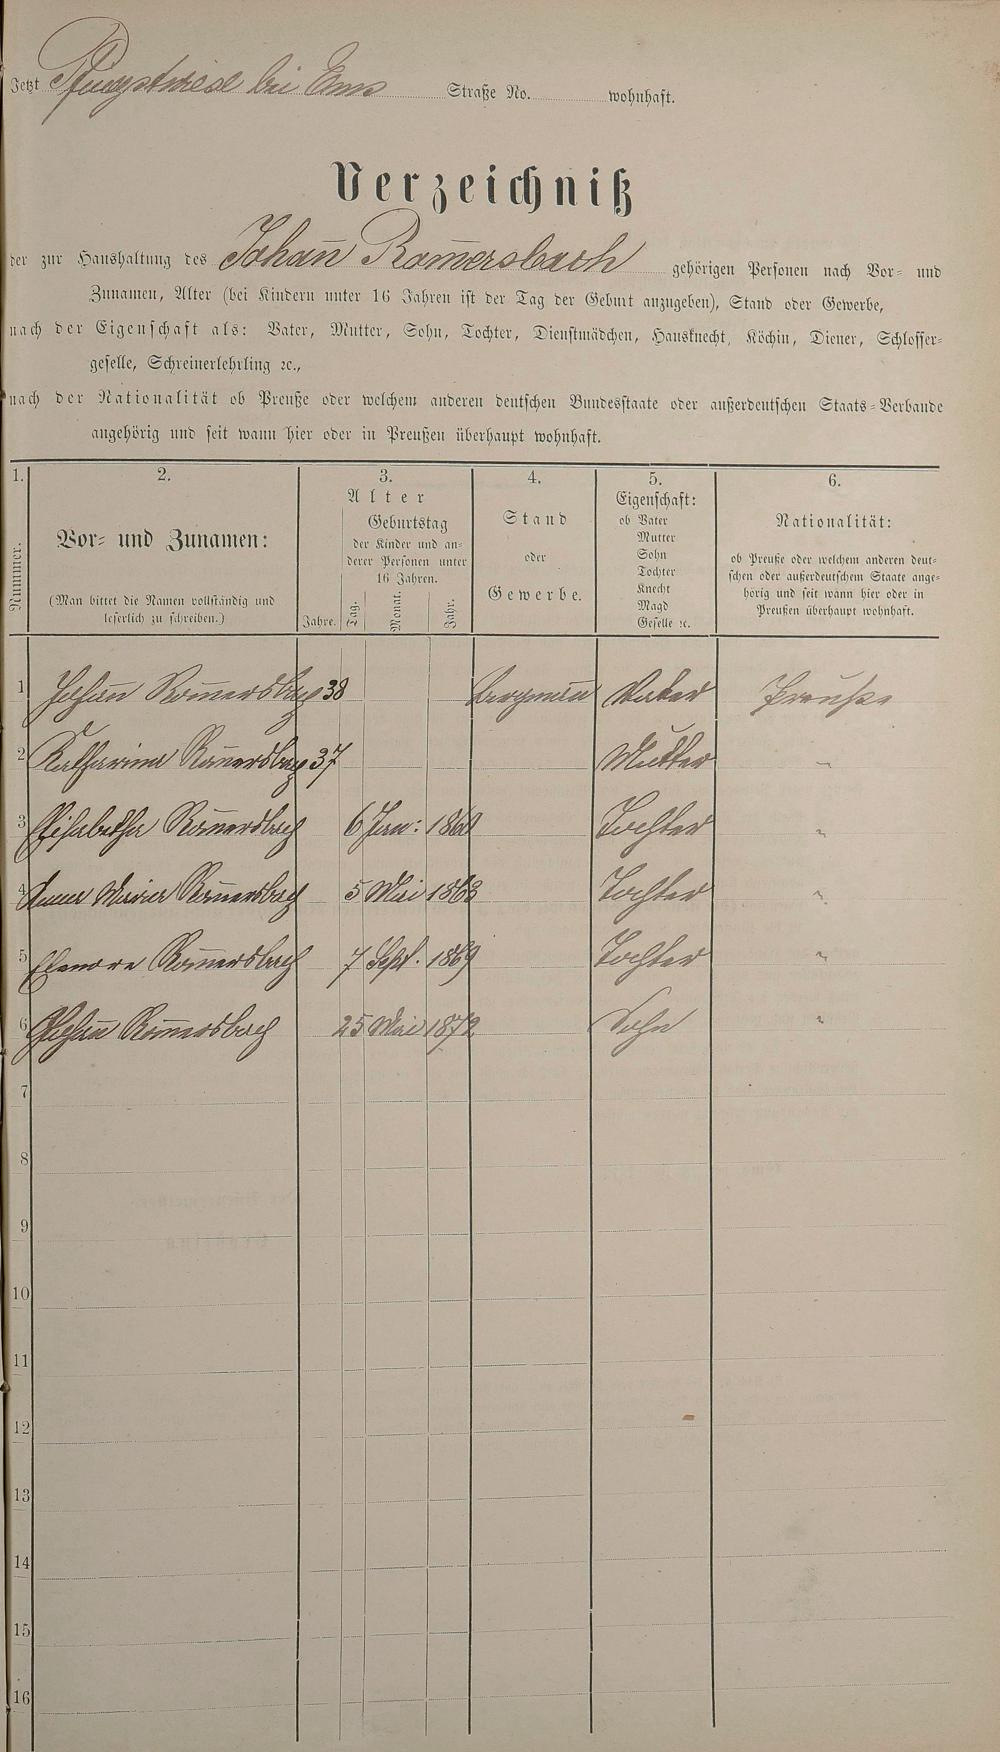 Jetzt Pfingstwiese bei Ems Straße No. wohnhaft.
Verzeichniß
der zur Haushaltung des Johan̄ Rom̄ersbach gehörigen Personen nach Vor- und
Zunamen, Alter (bei Kindern unter 16 Jahren ist der Tag der Geburt anzugeben), Stand oder Gewerbe,
nach der Eigenschaft als: Vater, Mutter, Sohn, Tochter, Dienstmädchen, Hausknecht, Köchin, Diener, Schlosser-
geselle, Schreinerlehrling ꝛc.,
nach der Nationalität ob Preuße oder welchem anderen deutschen Bundesstaate oder außerdeutschen Staats-Verbande
angehörig und seit wann hier oder in Preußen überhaupt wohnhaft.
1. 2. 3. 4. 5. 6.
Nummer.
Vor- und Zunamen:
(Man bittet die Namen vollständig und
leserlich zu schreiben.)
Alter
Jahre.
Geburtstag
der Kinder und an-
derer Personen unter
16 Jahren.
Tag. Monat. Jahr.
Stand
oder
Gewerbe.
Eigenschaft:
ob Vater
Mutter
Sohn
Tochter
Knecht
Magd
Geselle ꝛc.
Nationalität:
ob Preuße oder welchem anderen deut-
schen oder außerdeutschem Staate ange-
hörig und seit wann hier oder in
Preußen überhaupt wohnhaft.
1 Johan̄ Rom̄ersbach 38 Bergman̄ Vater Preuße
2 Katharina Rom̄ersbach 37 Mutter "
3 Elisabetha Rom̄ersbach 6 Jan: 1860 Tochter "
4 Anna Maria Rom̄ersbach 5 Mai 1863 Tochter "
5 Elenore Rom̄ersbach 7 Sept. 1869 Tochter "
6 Johan̄ Rom̄ersbach 25 Mai 1872 Sohn "
7
8
9
10
11
12
13
14
15
16